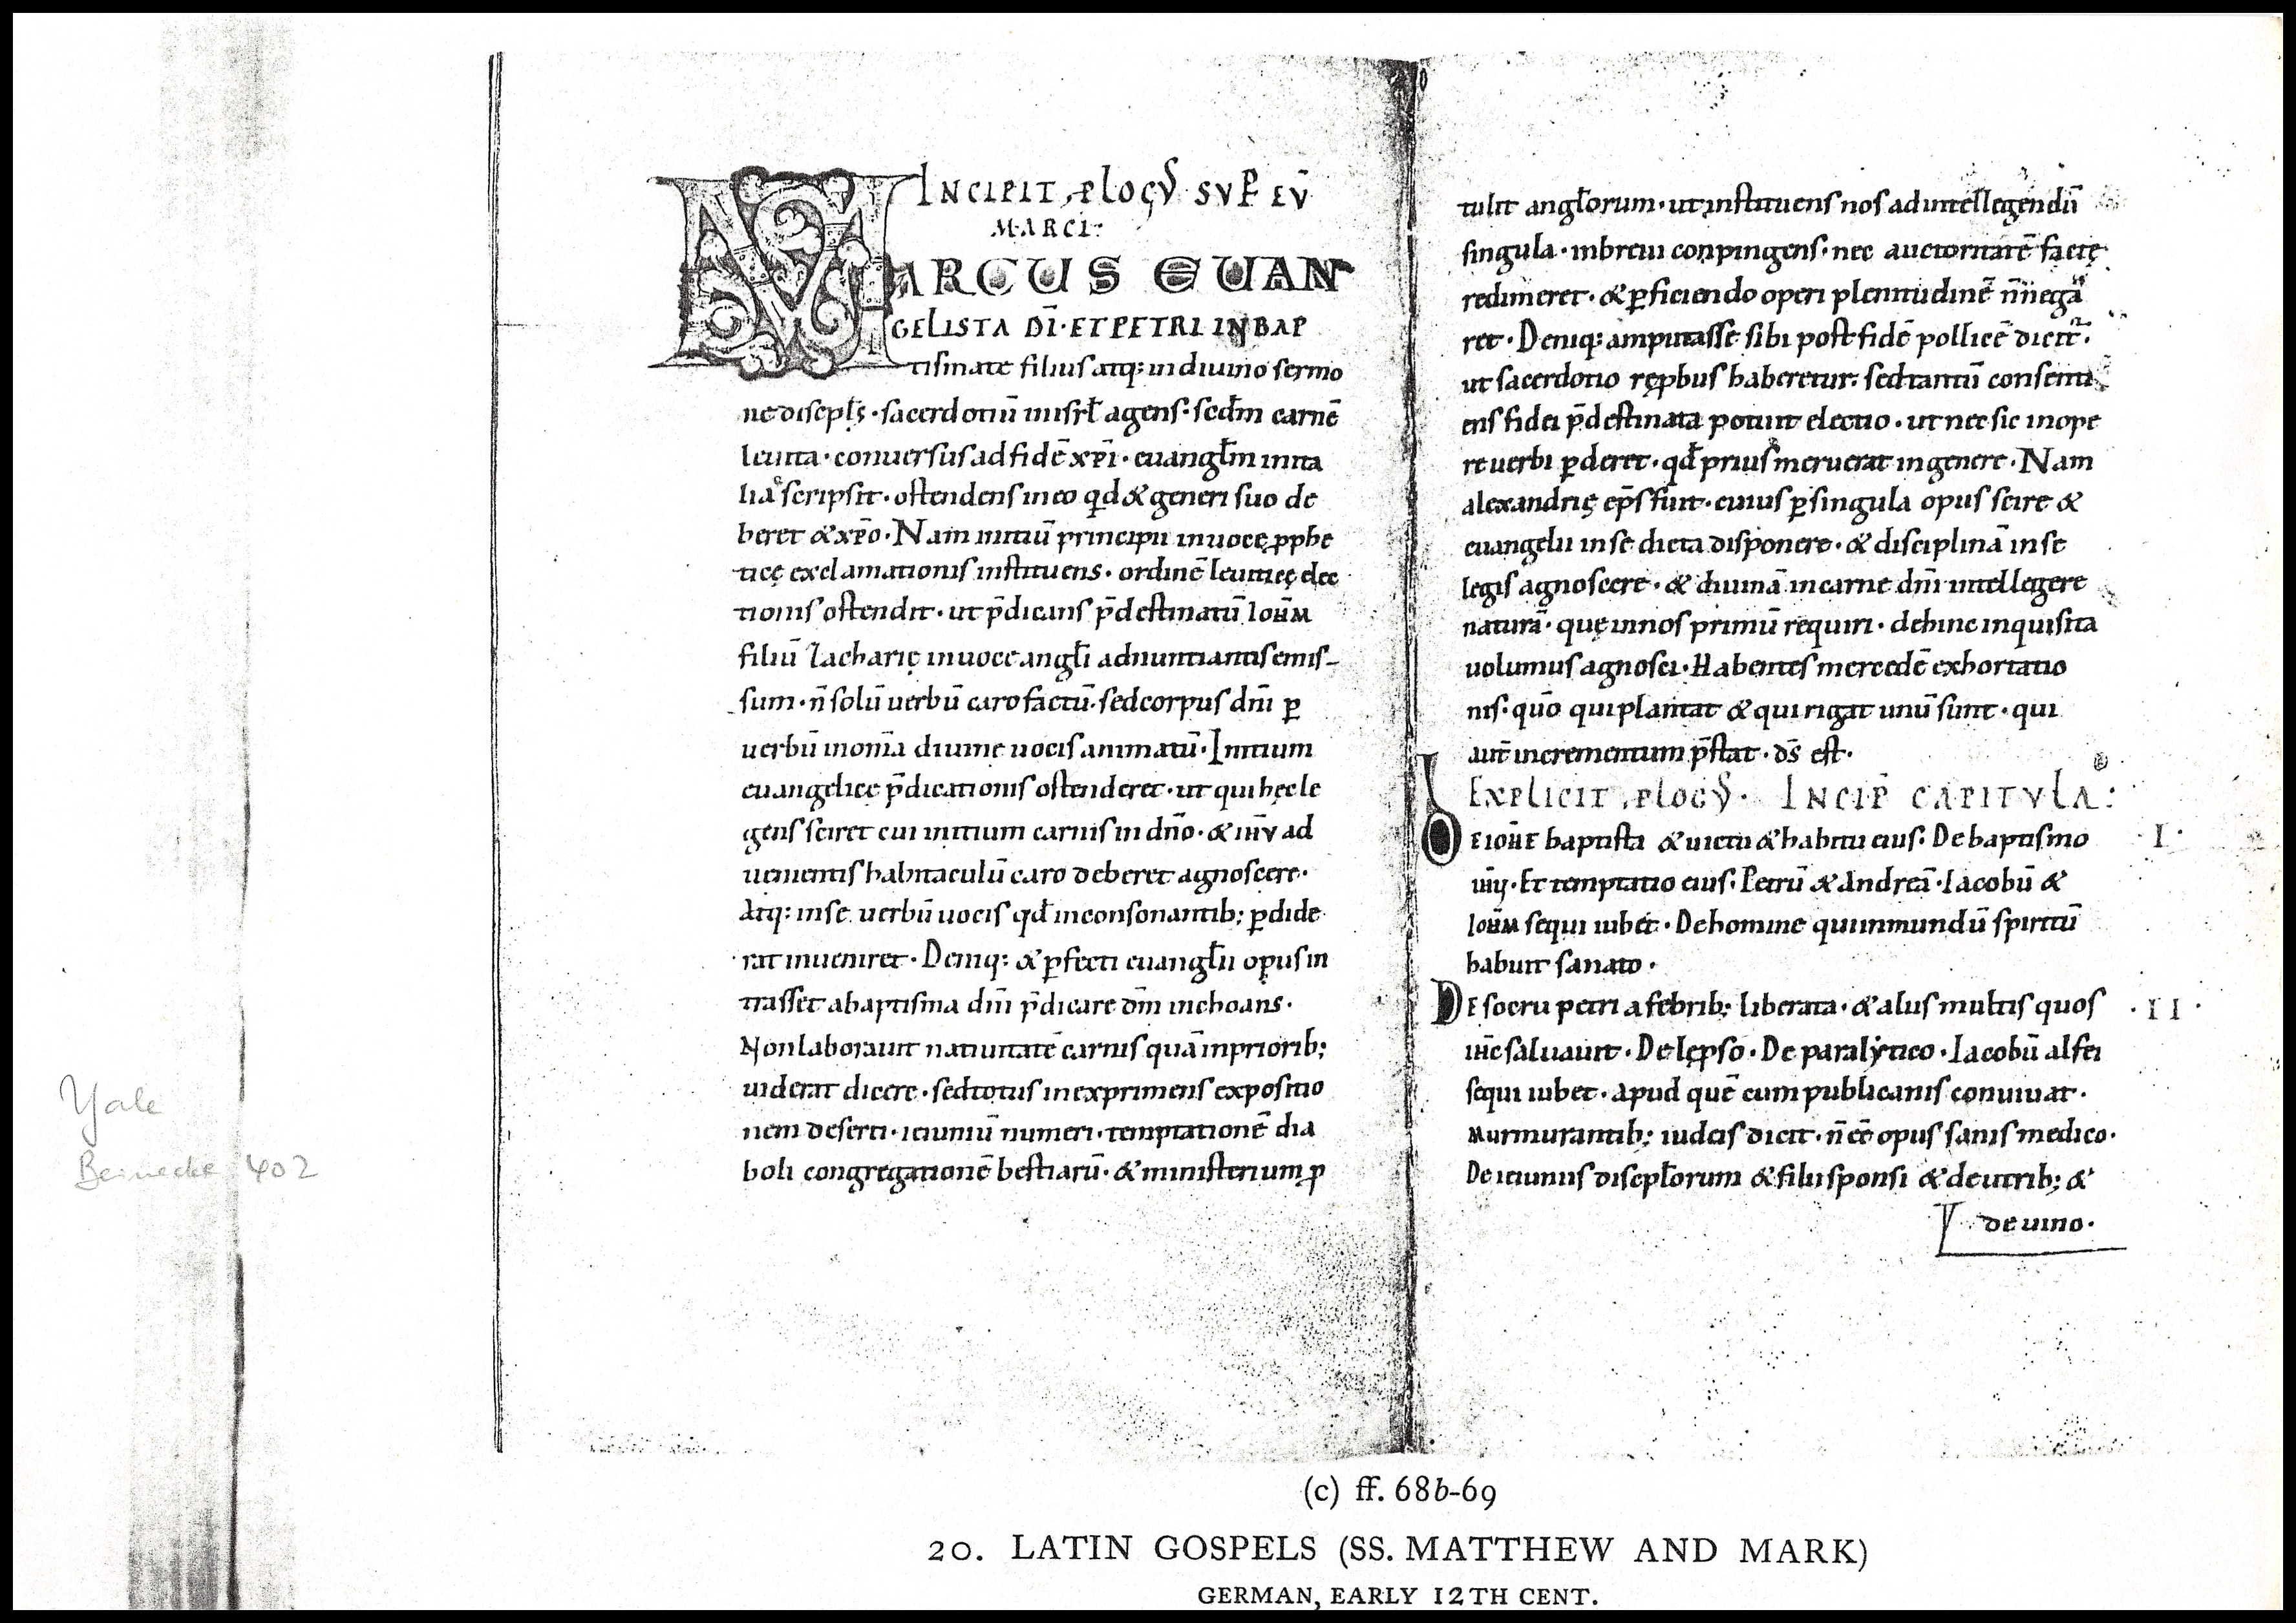 INCIPIT PLOGꝰ SVP EV̄
MARCI:
MARCUS EUAN
GELISTA DI·ET PETRI IN BAP
tismate filius atq: in diuino sermo
ne discipl̄s · sacerdotiū in isrl̄ agens· scdm̄ carnē
leuita · conuersus ad fidē xp̄i · euangl̄m in ita
liā scripsit · ostendens in eo qd & generi suo de
beret & xp̄o · Nam initiū principii in uocę pphe
ticę exclamationis instituens · ordinē leuiticę elec
tionis ostendit · ut p̄dicans p̄destinatū IOHM
filiū Zacharię in uoce angl̄i adnuntiantis emis-
sum · n̄ solū uerbū caro factū· sed corpus dn̄i ꝑ
uerbū in om̄ia diuine uocis animatū · Initium
euangelice p̄dicationis ostenderet · ut qui hęc le
gens sciret cui initium carnis in dn̄o · & ihū ad
uenientis habitaculū caro deberet agnoscere ·
Atq: in se uerbū uocis qd̄ in consonantib; ꝑdide
rat inueniret · Deniq: & ꝑfecti euangl̄ii opus in
trasset a baptisma dn̄i p̄dicare dm̄ inchoans ·
Non laborauit natiuitatē carnis quā in priorib;
uiderat dicere · sed totus in exprimens expositio
nem deserti · ieiuniū numeri · temptationē dia
boli congregationē bestiarū · & ministerium p
tulit angl̄orum · ut instituens nos ad intellegendū
singula · in breui conpingens · nec auctoritatē factę
redimeret · & ꝑficiendo operi plenitudinē n̄ negā
ret · Deniq: amputasse sibi post fidē pollicē dicit̄·
ut sacerdotio rępbus haberetur· sed tantū consenti
ens fidei p̄destinata potuit electio · ut nec sic in ope
re uerbi ꝑderet · qd̄ prius meruerat in genere · Nam
alexandrię ep̄s fuit · cuius ꝑ singula opus scire &
euangelii in se dicta disponere · & disciplinā in se
legis agnoscere · & diuinā in carne dn̄i intellegere
naturā · quę in nos primū requiri · dehinc inquisita
uolumus agnosci · Habentes mercedē exhortatio
nis· quō qui plantat & qui rigat unū sunt · qui
aut̄ incrementum p̄stat · ds̄ est ·
EXPLICIT PLOGꝰ · INCIP̄ CAPITVLA:
DE IOHE baptista & uictu & habitu eius· De baptismo ·I·
ihū· Et temptatio eius· Petrū & Andreā · Iacobū &
IOHM sequi iubet · De homine qui inmundū spiritū
habuit sanato ·
DE socru petri a febrib; liberata · & aliis multis quos ·II·
ihc saluauit · De lępso · De paralytico · Iacobū alfei
sequi iubet · apud quē cum publicanis conuiuat ·
Murmurantib; iudeis dicit · n̄ eē opus sanis medico·
De ieiuniis discipl̄orum & filii sponsi & de utrib; &
de uino·
Yale
Beinecke 402
(c) ff. 68b-69
20. LATIN GOSPELS (SS. MATTHEW AND MARK)
GERMAN, EARLY 12TH CENT.